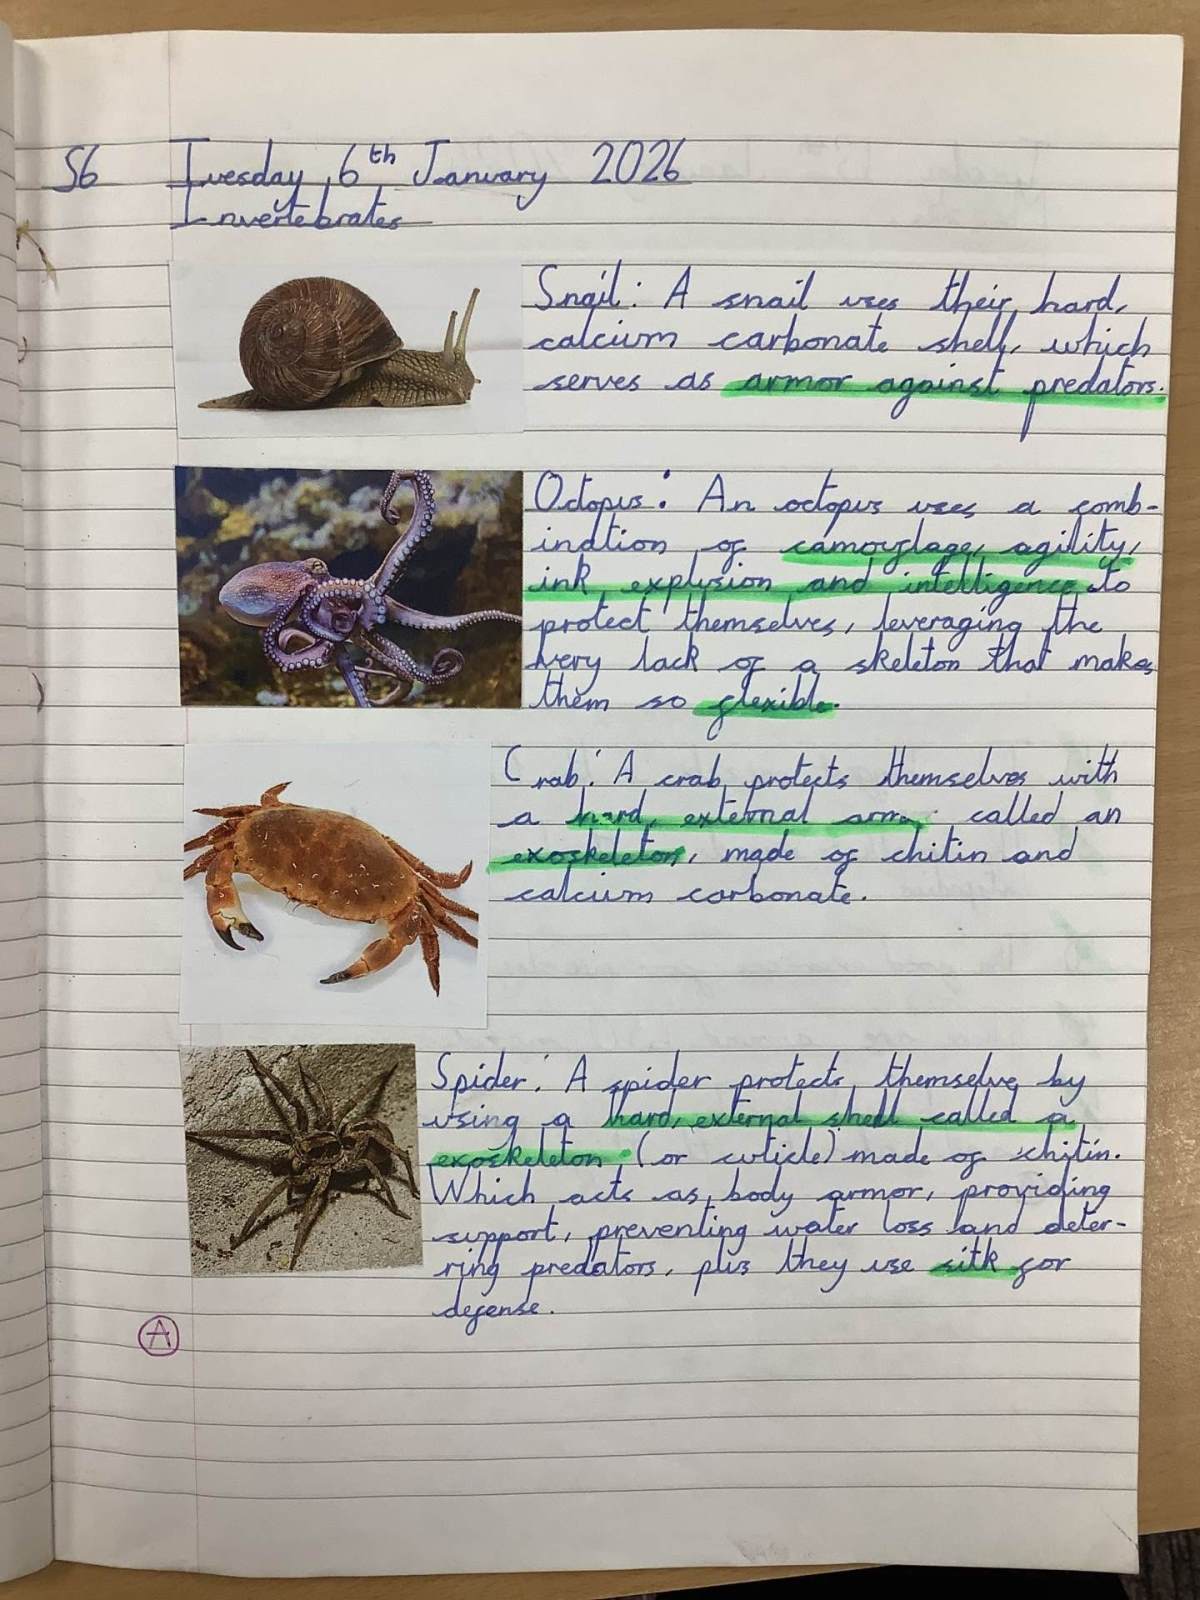 S6 Tuesday, 6th January 2026
Invertebrates
Snail: A snail uses their hard,
calcium carbonate shell, which
serves as armor against predators.
Octopus: An octopus uses a comb-
ination of camouflage, agility,
ink explusion and intelligence to
protect themselves, leveraging the
very lack of a skeleton that makes
them so flexible.
Crab: A crab protects themselves with
a hard, external armo called an
exoskeleton, made of chitin and
calcium carbonate.
Spider: A spider protects themselves by
using a hard, external shell called a
exoskeleton (or cuticle) made of chitin.
Which acts as body armor, providing
support, preventing water loss and deter-
ring predators, plus they use silk for
defense.
A